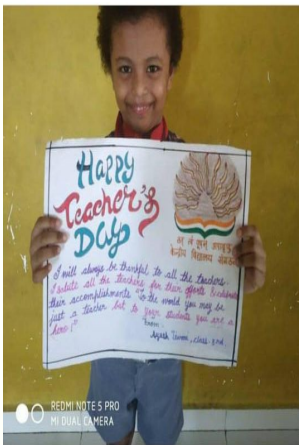 Happy
Teacher's
Day
तत् त्वं पूषन् अपावृणु
केन्द्रीय विद्यालय संगठन
I will always be thankful to all the teachers.
I salute all the teachers for their efforts &
their accomplishments. "To the world you may be
just a teacher but to your students you are a
hero!"
from:-
class-2nd
REDMI NOTE 5 PRO
MI DUAL CAMERA